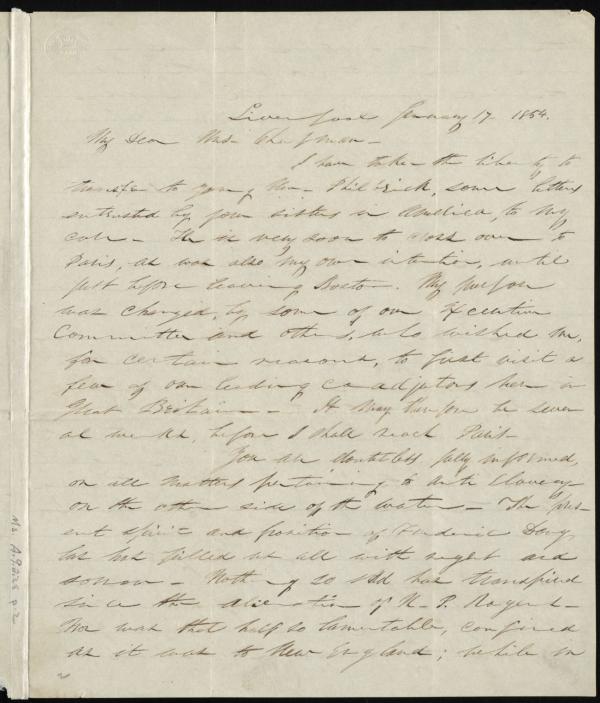 Liverpool January 17. 1854.
My Dear Mrs. Chapman -
I have taken the liberty to
transfer to young Mr. Philbrick, some letters
entrusted by your sisters in America, to my
care - He is very soon to cross over to
Paris, as was also my own intention, until
just before leaving Boston. My purpose
was changed, by some of our Executive
Committee and others, who wished me,
for certain reasons, to first visit a
few of our leading coadjutors here in
Great Britain - It may therefore be sever
al weeks, before I shall reach Paris -
You are doubtless, fully informed,
on all matters pertaining to Anti Slavery
on the other side of the water - The pres-
ent spirit and position of Frederic Doug
las has filled us all with regret and
sorrow - Nothing so sad has transpired
since the alienation of N. P. Rogers -
Nor was that half so lamentable, confined
as it was to New England; while in
Ms. A.9.2.28 p. 2